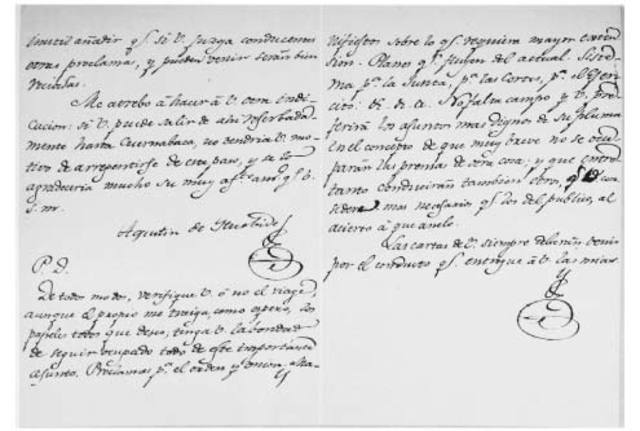 inutil añadir qe. si V. juzga conducentes
otras proclamas, y pueden venir serán bien
recividas.
Me atrebo á hacer á V. otra indi-
cacion: si V. puede salir de ahi reserbada-
mente hasta Cuernabaca, no tendria V. mo-
tivo de arrepentirse de este paso, y se lo
agradeceria mucho su muy afto. amo. q. b.
s. m.
Agustin de Iturbide
P. D.
De todo modo, verifique V. ó no el viage,
aunque el propio me traiga, como espero, los
papeles todos que deseo; tenga V. la bondad
de seguir ocupado todo de este importante
asunto. Proclamas pa. el orden y union. Ma-
nifiestos sobre lo qe. requiera mayor exten-
sion. Planos qe. fluyen del actual. Siste-
ma pa. la Junta, pa. las Cortes, pa. el Eger-
cito: &. &. &. No falta campo y V. pre-
ferirá los asuntos mas dignos de su pluma
en el concepto de que muy breve no se ocu-
parán las prensas de otra cosa; y que entre
tanto conduciran tambien otro, qe.
mas necesario qe. los del publico, al
acierto á que anelo.
Las cartas de V. siempre deberán venir
por el conducto qe. entregue á V. las mias.